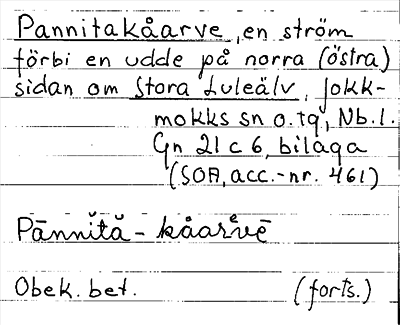 Pannitakåarve, en ström
förbi en udde på norra (östra)
sidan om Stora Luleälv, Jokk-
mokks sn o. tg, Nb. l.
Gn 21 c 6, bilaga
(SOA, acc.-nr. 461)
Pānnĭtă - kåarvē
Obek. bet. (forts.)